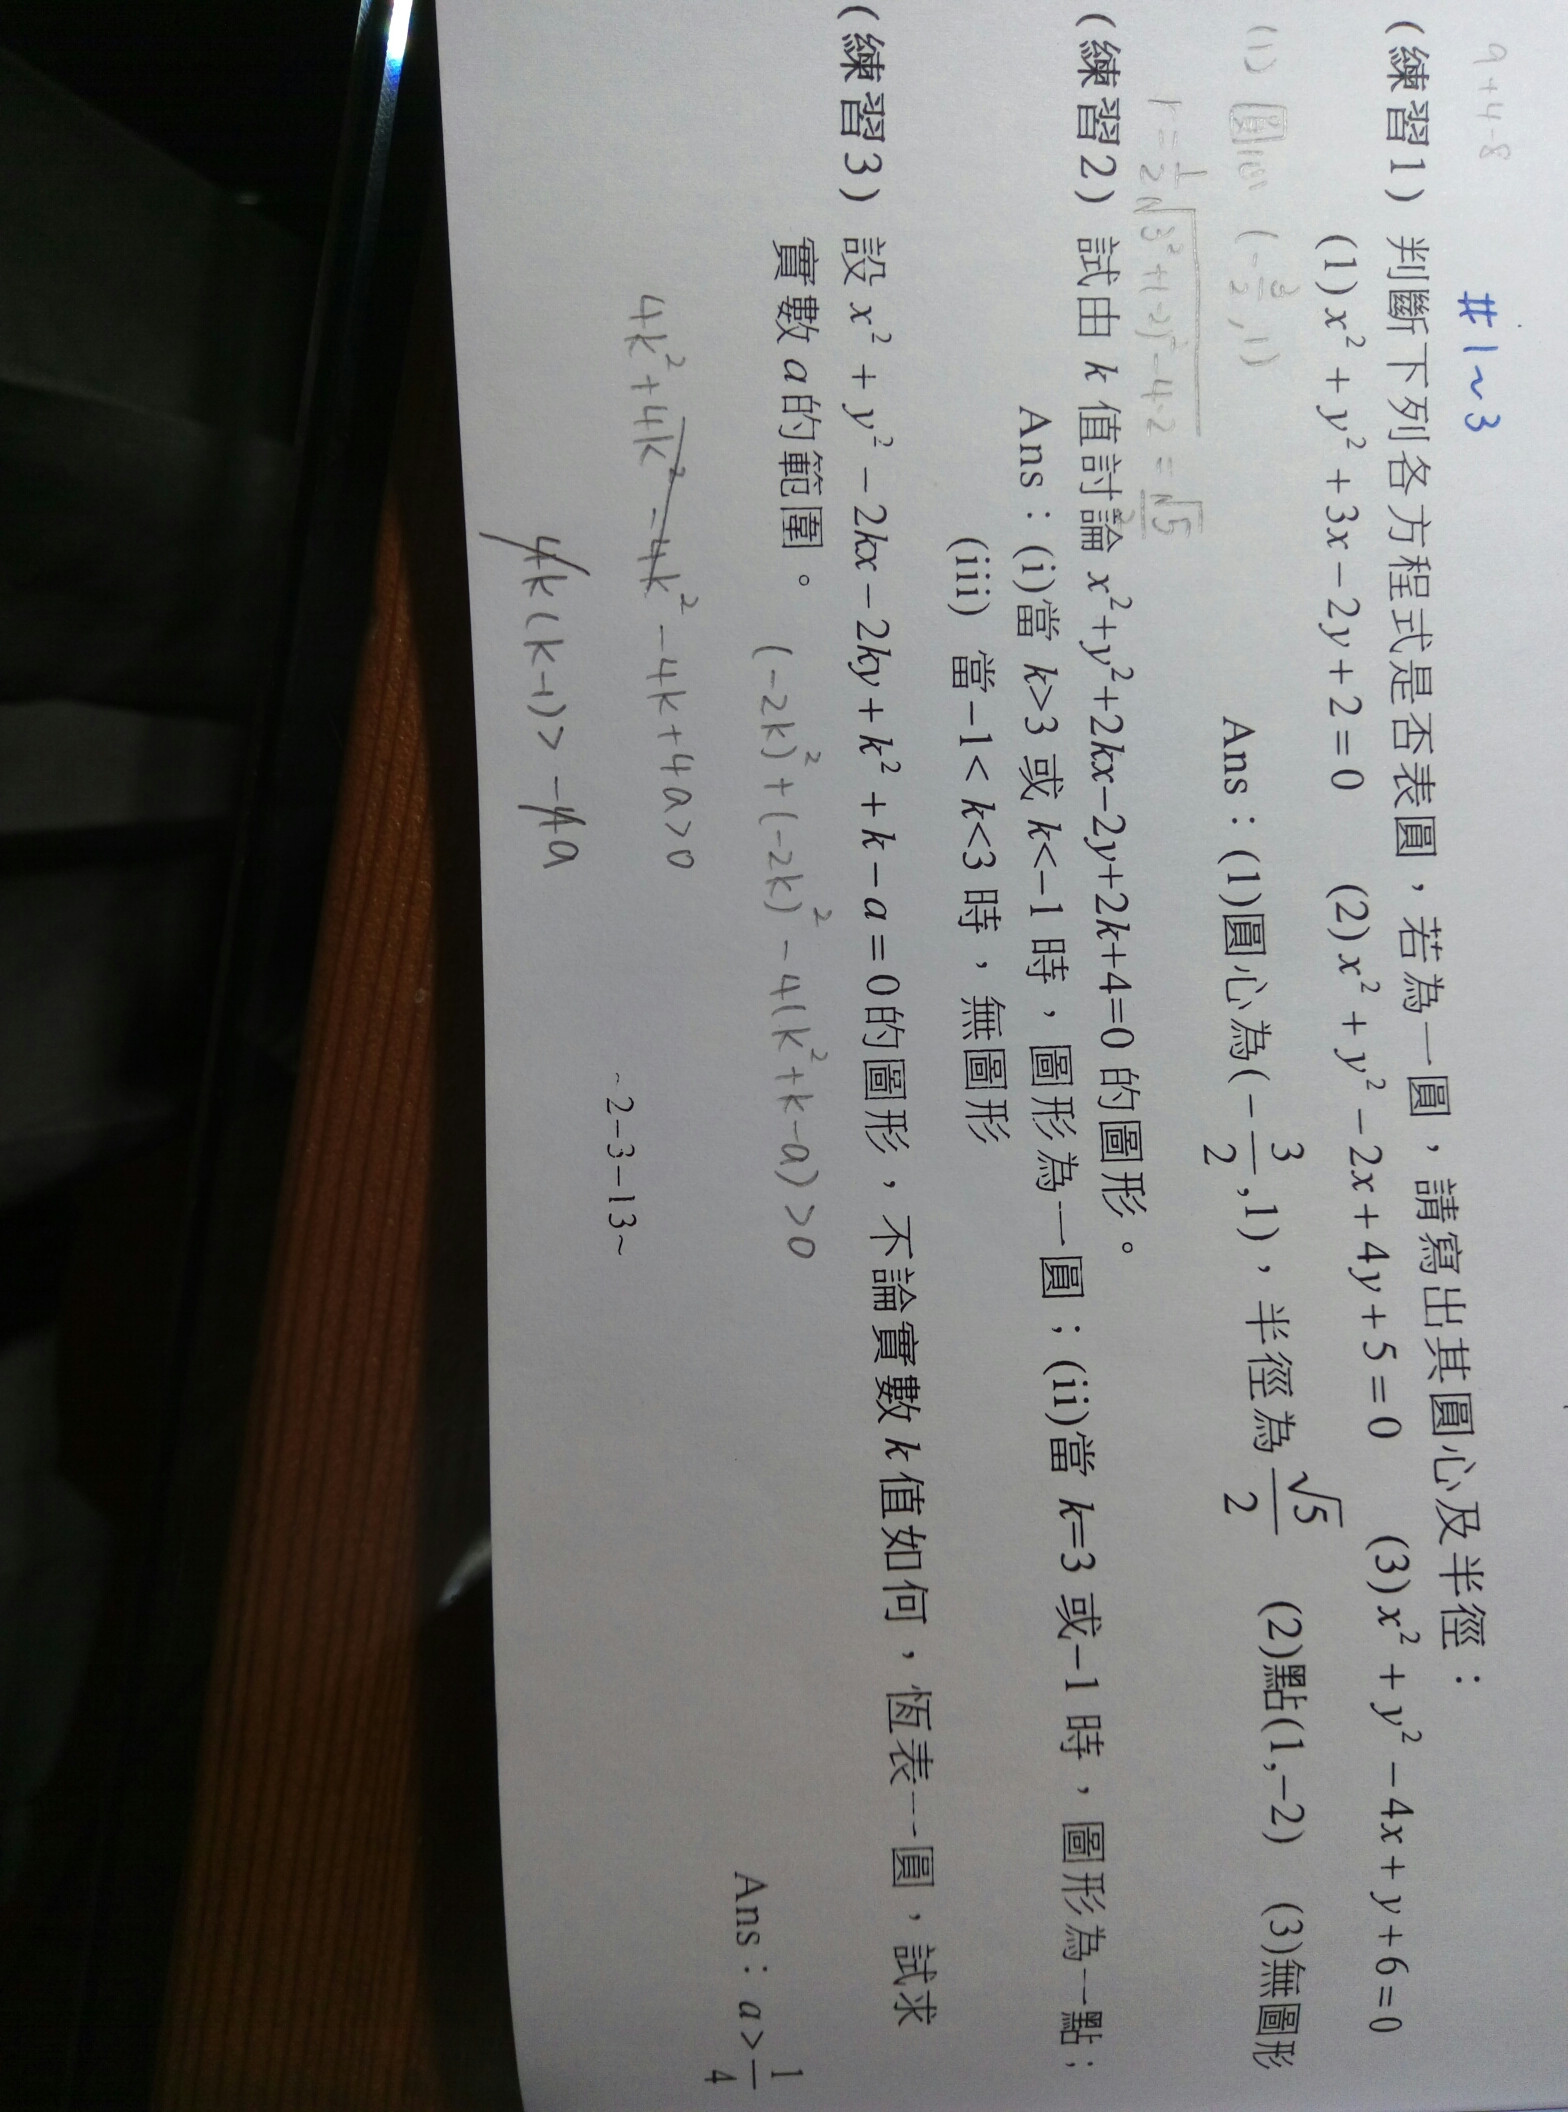 9+4-8
#1~3
(練習1) 判斷下列各方程式是否表圓，若為一圓，請寫出其圓心及半徑：
(1) x² + y² + 3x − 2y + 2 = 0 (2) x² + y² − 2x + 4y + 5 = 0 (3) x² + y² − 4x + y + 6 = 0
Ans：(1)圓心為(−3/2,1)，半徑為√5/2 (2)點(1,−2) (3)無圖形
(1) 圓心 (−3/2, 1)
r = 1/2 √(3²+(−2)²−4·2) = √5/2
(練習2) 試由 k 值討論 x²+y²+2kx−2y+2k+4=0 的圖形。
Ans：(i)當 k>3 或 k<−1 時，圖形為一圓；(ii)當 k=3 或−1 時，圖形為一點；
(iii) 當−1< k<3 時，無圖形
(練習3) 設 x² + y² − 2kx − 2ky + k² + k − a = 0的圖形，不論實數 k 值如何，恆表一圓，試求
實數 a 的範圍。
Ans：a > 1/4
(−2k)²+(−2k)²−4(k²+k−a)>0
4k²+4k²−4k²−4k+4a>0
4k(k−1)>−4a
~2−3−13~